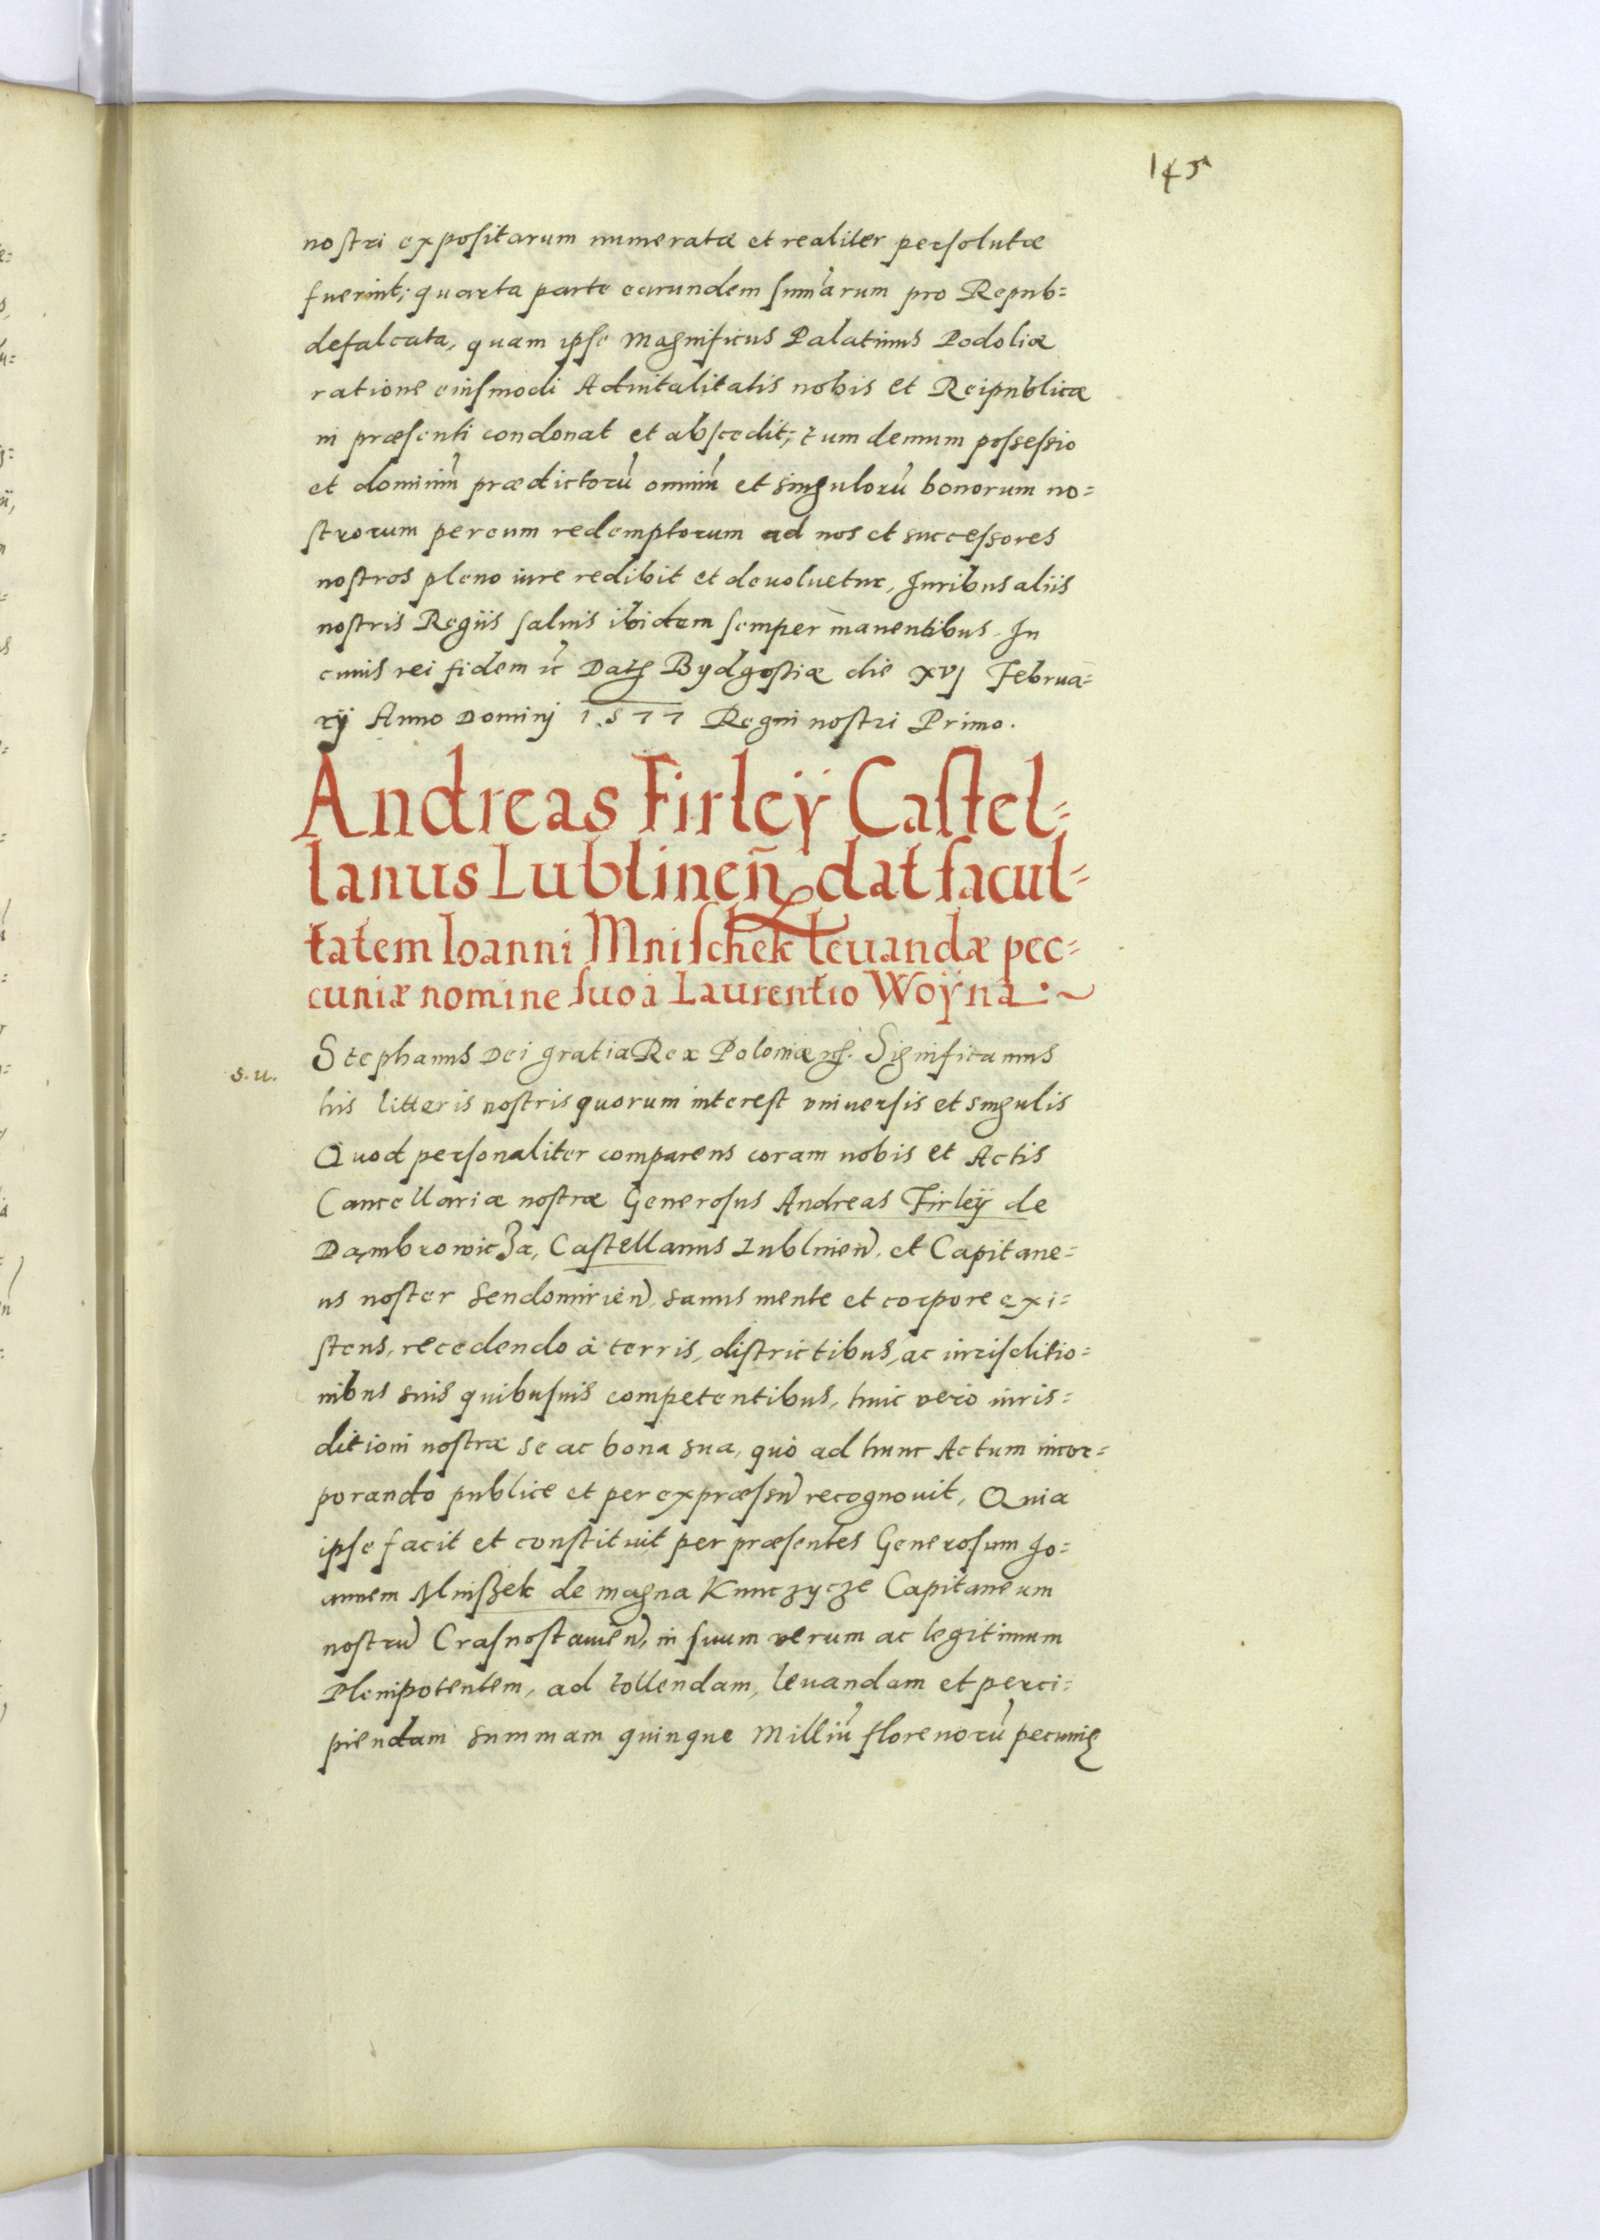 145
nostri expositarum numeratæ et realiter persolutæ
fuerint; quarta parte earundem sum̃arum pro Repub=
defalcata, quam ipse Magnificus Palatinus Podoliæ
ratione eiusmodi Aduitalitatis nobis et Reipublicæ
in præsenti condonat et abscedit; tum demum possessio
et dominiũ prædictorũ omniũ et singulorũ bonorum no=
strorum per eum redemptorum ad nos et successores
nostros pleno iure redibit et deuoluetur, Juribus aliis
nostris Regiis saluis ibidem semper manentibus. In
cuius rei fidem  
Bydgostiæ die XVJ Februa=
rij Anno Dominj 1577 Regni nostri Primo.
Andreas Firleÿ Castel=
lanus Lublineñ dat facul=
tatem Ioanni Mnischek leuandæ pec=
cuniæ nomine suo à Laurentio Woÿna
Stephanus Dei gratia Rex Poloniæ Significamus
s.u.
his litteris nostris quorum interest vniuersis et singulis
Quod personaliter comparens coram nobis et Actis
Cancellariæ nostræ Generosus Andreas Firleÿ de
Dambrowicza, Castellanus Lublineñ, et Capitane=
us noster Sendomirieñ, sanus mente et corpore exi=
stens, recedendo à terris, districtibus, ac iurisditio=
nibus suis quibusuis competentibus, huic vero iuris=
ditioni nostræ se ac bona sua, quò ad hunc Actum incor=
porando publice et per expræssũ recognouit, Quia
ipse facit et constituit per præsentes Generosum Jo=
annem Mniszek de magna Kunczycze Capitaneum
nostrũ Crasnostauieñ, in suum verum ac legitimum
Plenipotentem, ad tollendam, leuandam et perci=
piendam summam quinque Milliũ florenorũ pecunię